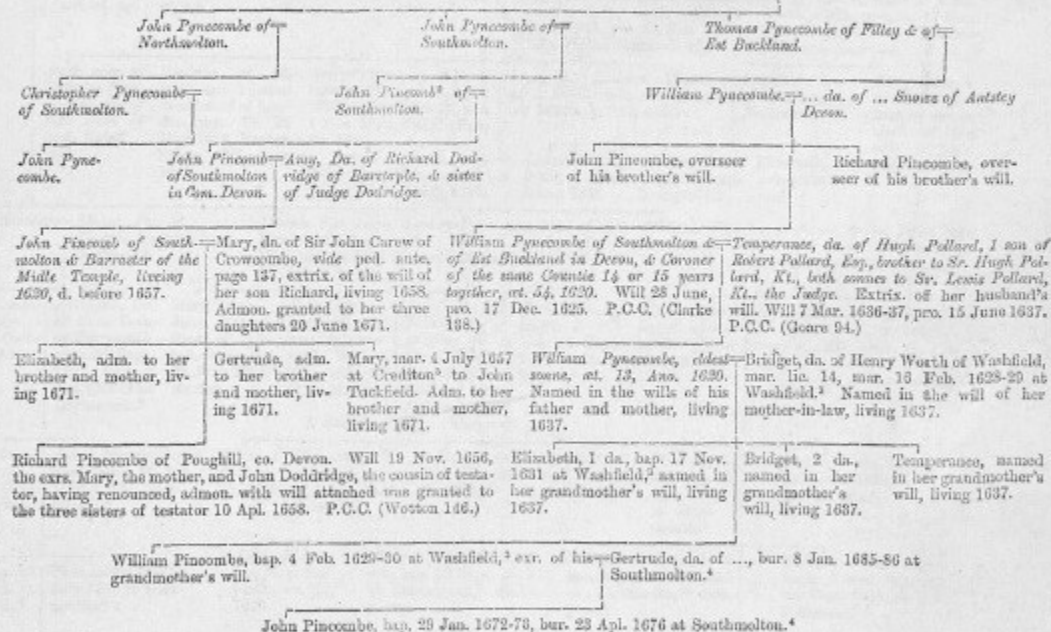 John Pynecombe of
Northmolton.
John Pynecombe of
Southmolton.
Thomas Pynecombe of Filley & of
Est Buckland.
Christopher Pynecombe
of Southmolton.
John Pincomb² of
Southmolton.
William Pynecombe. ... da. of ... Snowe of Antstey
Devon.
John Pyne-
combe.
John Pincomb
of Southmolton
in Com. Devon.
Amy, Da. of Richard Dod-
ridge of Barstaple, & sister
of Judge Dodridge.
John Pincombe, overseer
of his brother's will.
Richard Pincombe, over-
seer of his brother's will.
John Pincomb of South-
molton & Barraster of the
Midle Temple, liveing
1620, d. before 1657.
Mary, da. of Sir John Carew of
Crowcombe, vide ped. ante,
page 137, extrix. of the will of
her son Richard, living 1658.
Admon. granted to her three
daughters 20 June 1671.
William Pynecombe of Southmolton &
of Est Buckland in Devon, & Coroner
of the same Countie 14 or 15 years
together, æt. 54, 1620. Will 28 June,
pro. 17 Dec. 1625. P.C.C. (Clarke
138.)
Temperance, da. of Hugh Pollard, 1 son of
Robert Pollard, Esq., brother to Sr. Hugh Pol-
lard, Kt., both sonnes to Sr. Lewis Pollard,
Kt., the Judge. Extrix. off her husband's
will. Will 7 Mar. 1636-37, pro. 15 June 1637.
P.C.C. (Goare 94.)
Elizabeth, adm. to her
brother and mother, liv-
ing 1671.
Gertrude, adm.
to her brother
and mother, liv-
ing 1671.
Mary, mar. 4 July 1657
at Crediton⁵ to John
Tuckfield. Adm. to her
brother and mother,
living 1671.
William Pynecombe, eldest
sonne, æt. 13, Ano. 1620.
Named in the wills of his
father and mother, living
1637.
Bridget, da. of Henry Worth of Washfield,
mar. lic. 14, mar. 16 Feb. 1628-29 at
Washfield.³ Named in the will of her
mother-in-law, living 1637.
Richard Pincombe of Poughill, co. Devon. Will 19 Nov. 1656,
the exrs. Mary, the mother, and John Doddridge, the cousin of testa-
tor, having renounced, admon. with will attached was granted to
the three sisters of testator 10 Apl. 1658. P.C.C. (Wotton 146.)
Elizabeth, 1 da., bap. 17 Nov.
1631 at Washfield,³ named in
her grandmother's will, living
1637.
Bridget, 2 da.,
named in her
grandmother's
will, living 1637.
Temperance, named
in her grandmother's
will, living 1637.
William Pincombe, bap. 4 Feb. 1629-30 at Washfield,³ exr. of his
grandmother's will.
Gertrude, da. of ..., bur. 8 Jan. 1685-86 at
Southmolton.⁴
John Pincombe, bap. 29 Jan. 1672-73, bur. 23 Apl. 1676 at Southmolton.⁴